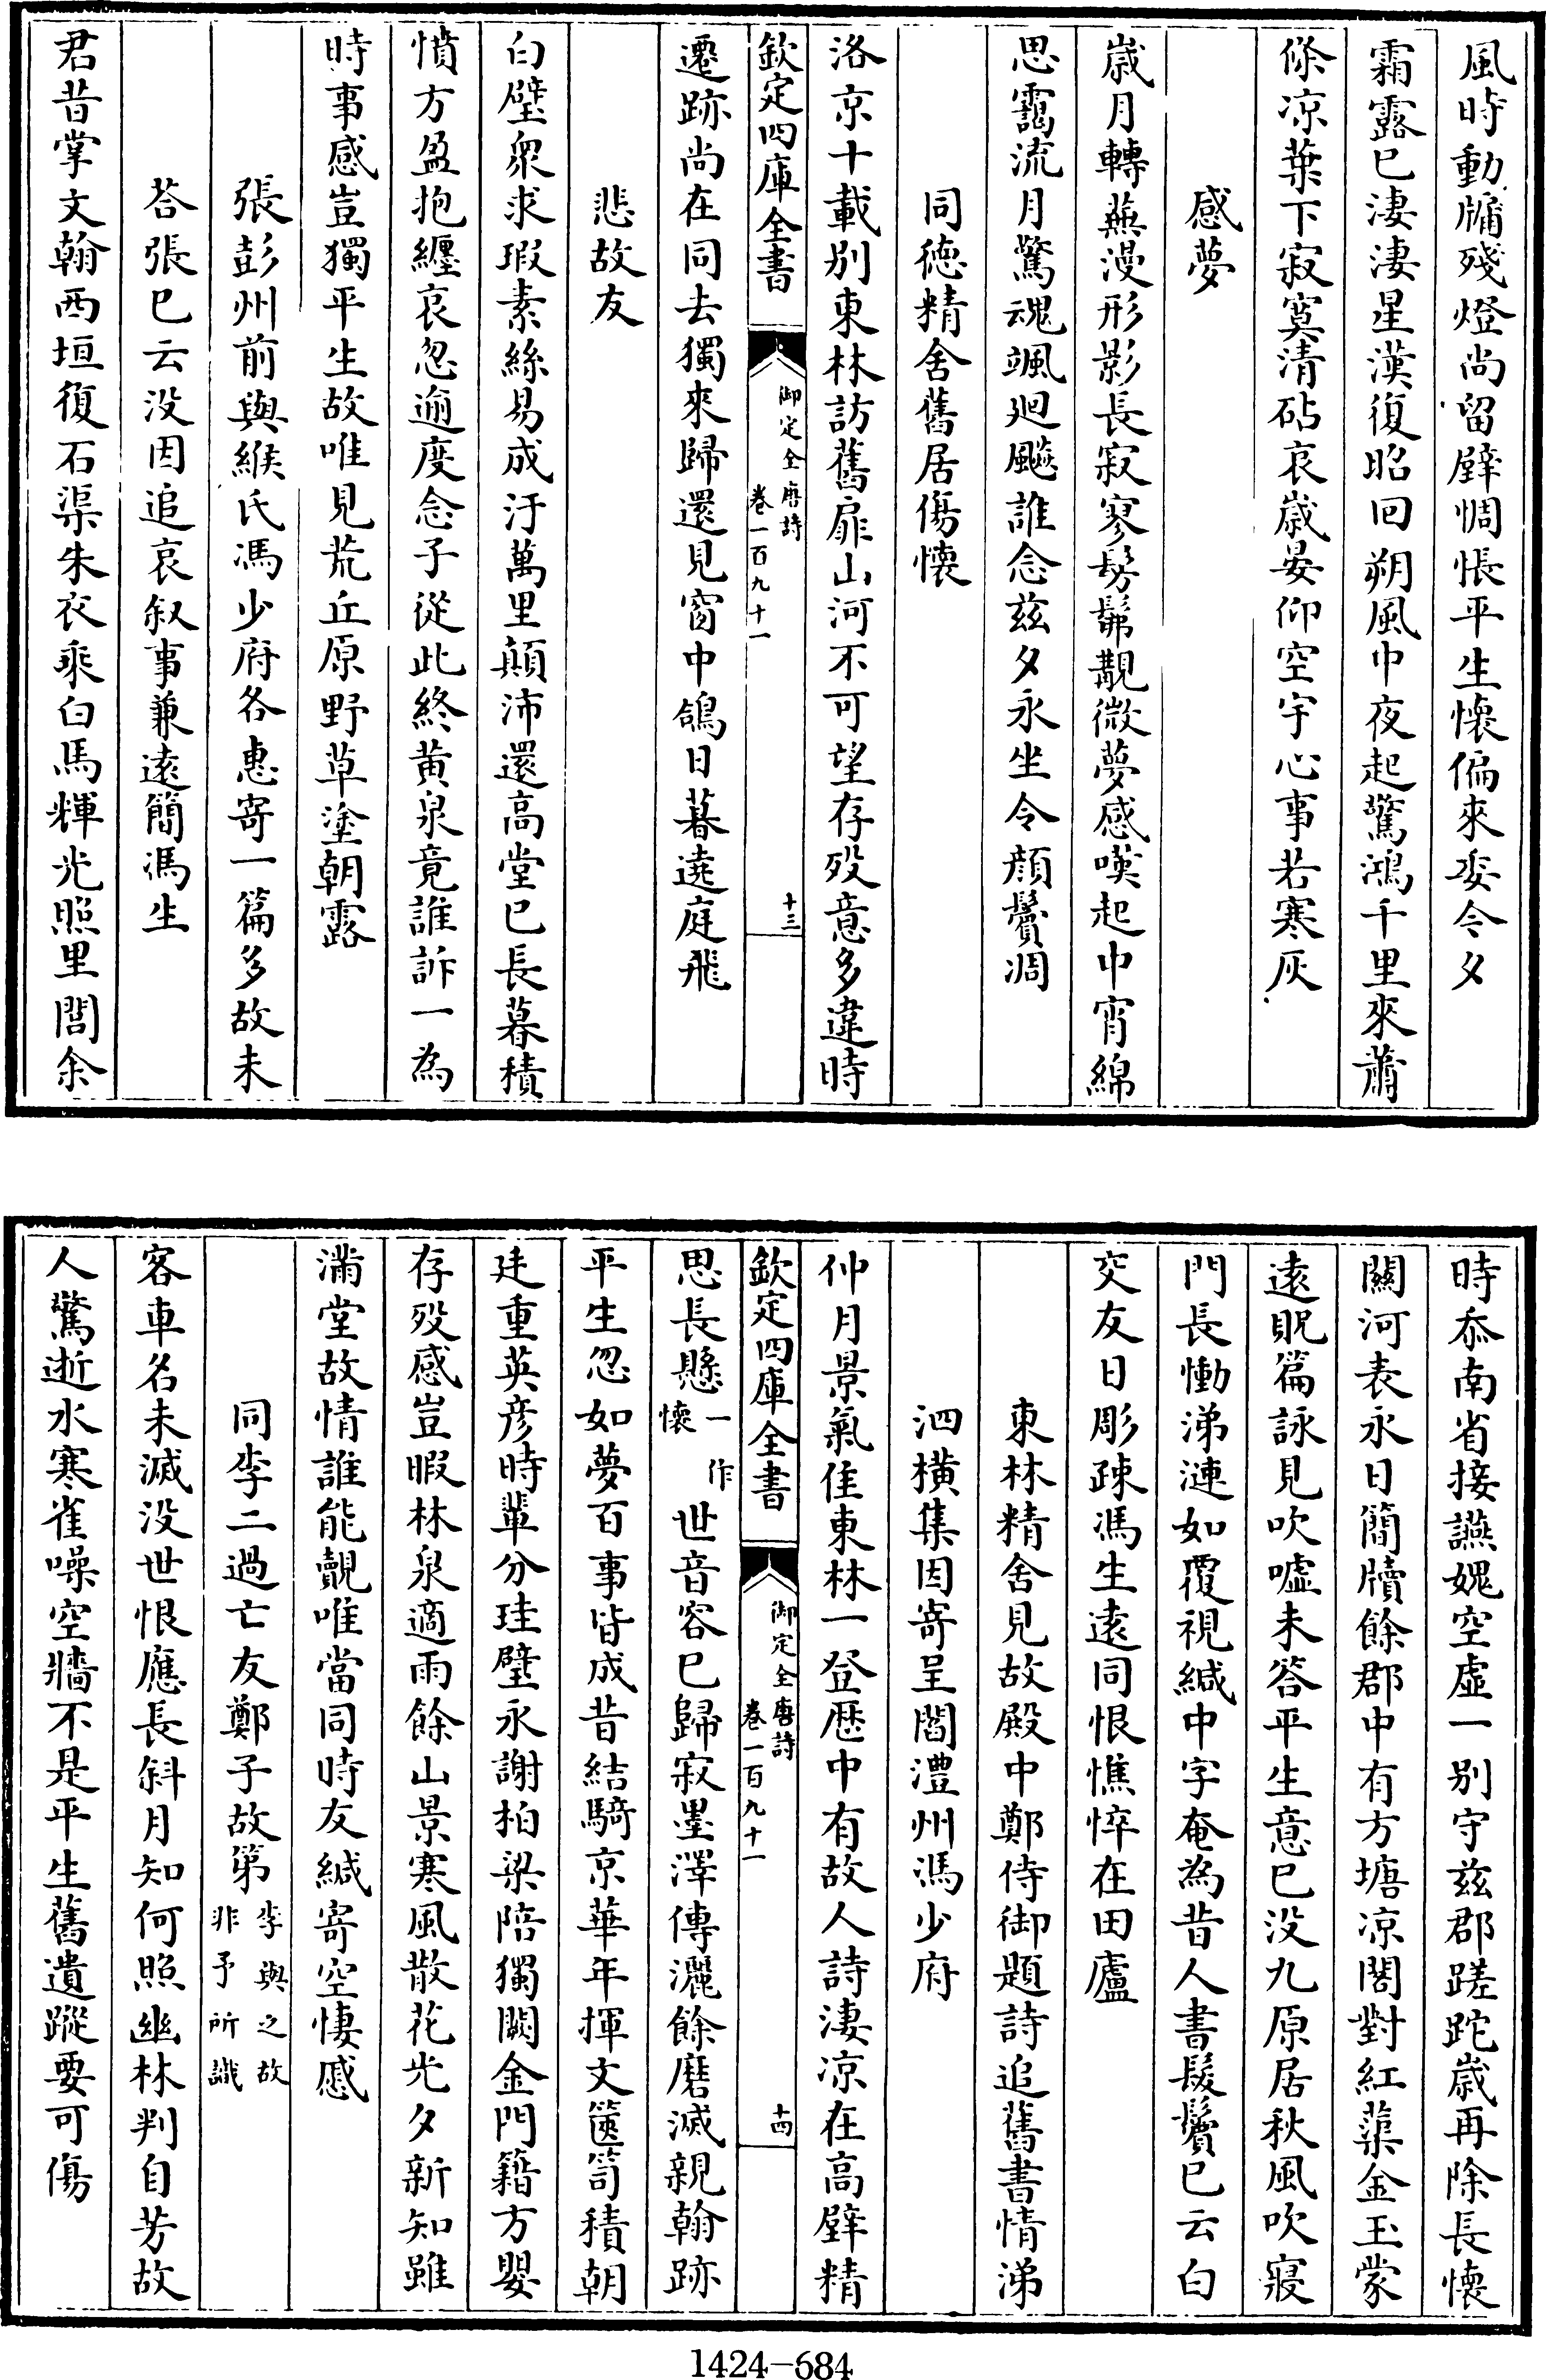 風時動牖殘燈尚留壁惆悵平生懷偏來委今夕
霜露已淒淒星漢復昭回朔風中夜起驚鴻千里來蕭
條凉葉下寂寞清砧哀歲晏仰空宇心事若寒灰
感夢
歲月轉蕪漫形影長寂寥髣髴覯微夢感嘆起中宵綿
思靄流月驚魂颯廻飈誰念兹夕永坐令顔鬢凋
同徳精舍舊居傷懐
洛京十載别東林訪舊扉山河不可望存歿意多違時
欽定四庫全書
御定全唐詩
卷一百九十一
十三
遷跡尚在同去獨來歸還見窗中鴿日暮遶庭飛
悲故友
白璧衆求瑕素絲易成汙萬里顛沛還高堂已長暮積
憤方盈抱纏哀忽逾度念子從此終黄泉竟誰訴一為
時事感豈獨平生故唯見荒丘原野草塗朝露
張彭州前與緱氏馮少府各惠寄一篇多故未
荅張已云没因追哀叙事兼逺簡馮生
君昔掌文翰西垣復石渠朱衣乘白馬輝光照里閭余
時忝南省接讌媿空虚一别守兹郡蹉跎歲再除長懐
關河表永日簡牘餘郡中有方塘凉閣對紅蕖金玉蒙
逺貺篇詠見吹嘘未答平生意已没九原居秋風吹寢
門長慟涕漣如覆視緘中字奄為昔人書髮鬢已云白
交友日彫疎馮生逺同恨憔悴在田廬
東林精舍見故殿中鄭侍御題詩追舊書情涕
泗横集因寄呈閻澧州馮少府
仲月景氣佳東林一登歴中有故人詩淒凉在高壁精
欽定四庫全書
御定全唐詩
卷一百九十一
十四
思長懸一作懐世音容已歸寂墨澤傳灑餘磨滅親翰跡
平生忽如夢百事皆成昔結騎京華年揮文篋笥積朝
廷重英彦時輩分珪璧永謝柏梁陪獨闕金門籍方嬰
存歿感豈暇林泉適雨餘山景寒風散花光夕新知雖
滿堂故情誰能覿唯當同時友緘寄空悽慼
同李二過亡友鄭子故第李與之故非予所識
客車名未滅没世恨應長斜月知何照幽林判自芳故
人驚逝水寒雀噪空牆不是平生舊遺蹤要可傷
1424-684